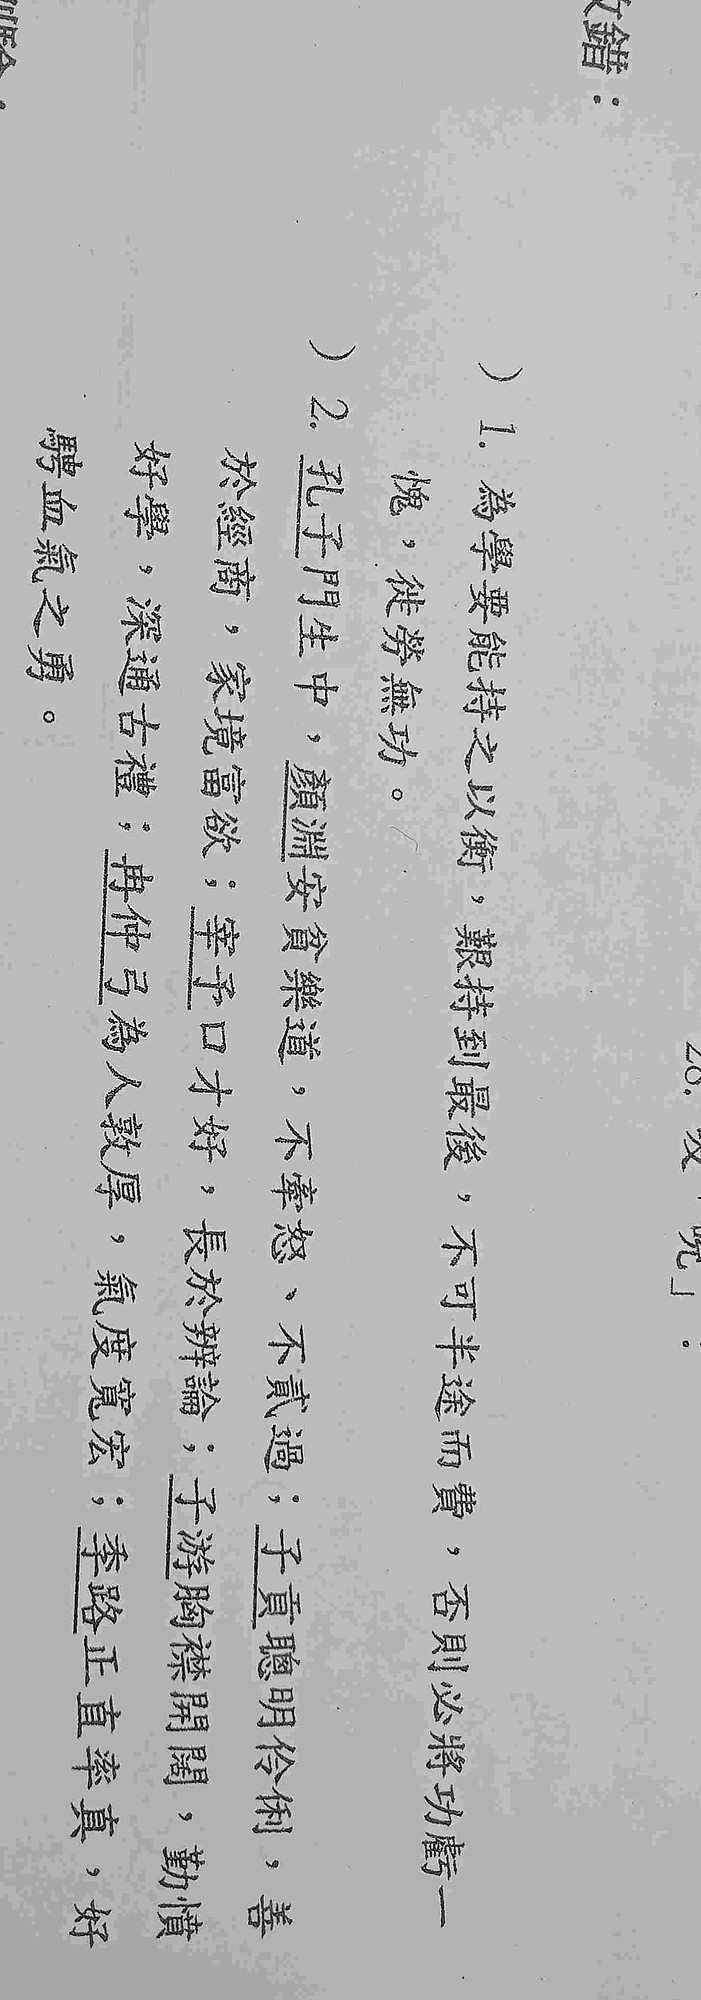 改錯：
) 1. 為學要能持之以衡，艱持到最後，不可半途而費，否則必將功虧一
愧，徒勞無功。
) 2. 孔子門生中，顏淵安貧樂道，不牽怒、不貳過；子貢聰明伶俐，善
於經商，家境富欲；宰予口才好，長於辨論；子游胸襟開闊，勤憤
好學，深通古禮；冉仲弓為人敦厚，氣度寬宏；季路正直率真，好
騁血氣之勇。